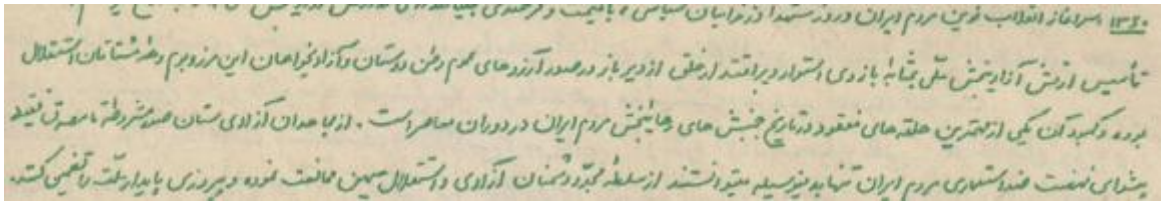 ۱۳۶۰ سرآغاز انقلاب نوین مردم ایران و روز
تأسیس ارتش آزادیبخش ملی بمثابهٔ بازوی استوار و پراقتدار خلق از دیرباز در صدر آرزوهای عموم وطن دوستان و آزادیخواهان این مرز و بوم و طلایه‌داران استقلال
بوده و کمبود آن یکی از مهمترین حلقه‌های مفقود در تاریخ جنبش‌های رهائیبخش مردم ایران در دوران معاصر است. از مجاهدان آزادی ستان صدر مشروطه تا مصدق فقید
پیشوای نهضت ضد استعماری مردم ایران تنها بدینوسیله میتوانستند از سلطهٔ مجدد دشمنان آزادی و استقلال میهن ممانعت نموده و پیروزی پایدار ملت را تضمین کنند.